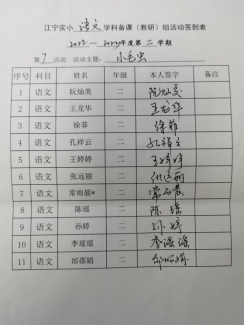 江宁实小 语文 学科备课（教研）组活动签到表
2022—2023学年度第二学期
第 7 活动 活动主题： 小毛虫
序号 科目 姓名 年级 本人签字 备注
1 语文 阮灿美 二 阮灿美
2 语文 王龙华 二 王龙华
3 语文 徐菲 二 徐菲
4 语文 孔祥云 二 孔祥云
5 语文 王婷婷 二 王婷婷
6 语文 张远丽 二 张远丽
7 语文 常海晨* 二
8 语文 陈瑶 二 陈瑶
9 语文 孙婷 二 孙婷
10 语文 李瑶瑶 二 李瑶瑶
11 语文 邰娜娟 二